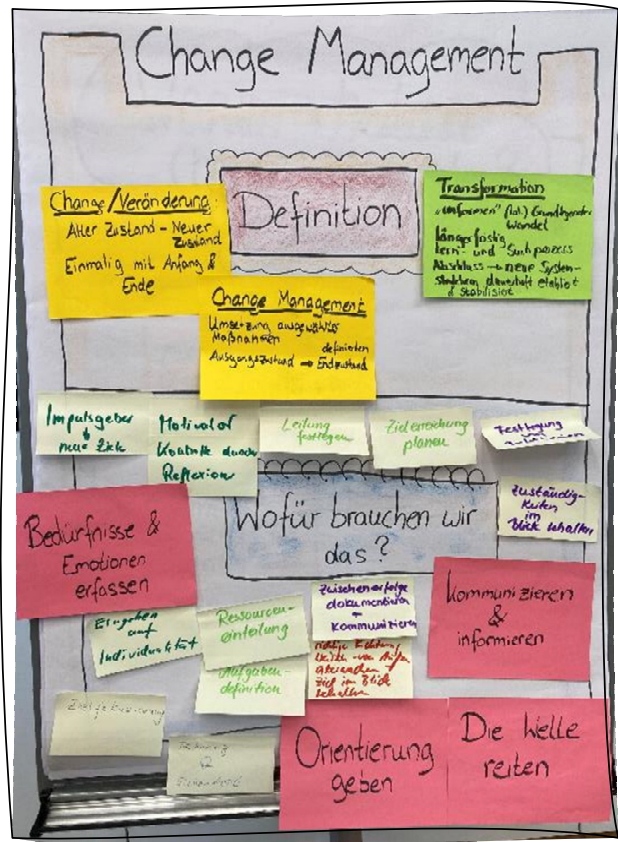 Change Management
Definition
Change/Veränderung
Alter Zustand - Neuer
Zustand
Einmalig mit Anfang &
Ende
Transformation
"umformen" (lat.) Grundlegender
Wandel
längerfristig
Lern- und Suchprozess
Abschluss → neue System-
strukturen dauerhaft etabliert
& stabilisiert
Change Management
Umsetzung ausgewählter
Maßnahmen
definierten
Ausgangszustand → Endzustand
Impulsgeber
neue Ziele
Motivator
Kontrolle durch
Reflexion
Leitung
festlegen
Zielerreichung
planen
Festlegung
Zuständig-
keiten
im
Blick behalten
Wofür brauchen wir
das?
Bedürfnisse &
Emotionen
erfassen
Eingehen
auf
Individualität
Ressourcen-
einteilung
Aufgaben-
definition
Zwischenerfolge
dokumentieren
+
kommunizieren
richtige Richtung
Ziel im Blick
behalten
Kommunizieren
&
informieren
Orientierung
geben
Die Welle
reiten